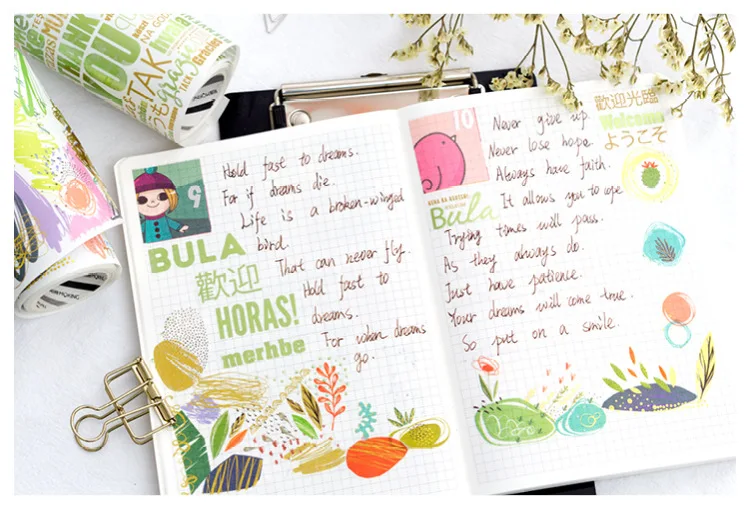 THANK
YOU
TAK
NA GODE
Gracies
9
Hold fast to dreams.
For if dreams die.
Life is a broken-winged
bird.
That can never fly.
Hold fast to
dreams.
For when dreams
go.
BULA
歡迎
HORAS!
merhbe
10
Never give up.
Never lose hope.
Always have faith.
It allows you to cope
Trying times will pass.
As they always do.
Just have patience.
Your dreams will come true.
So put on a smile.
Bula
歡迎光臨
Welcome
ようこそ